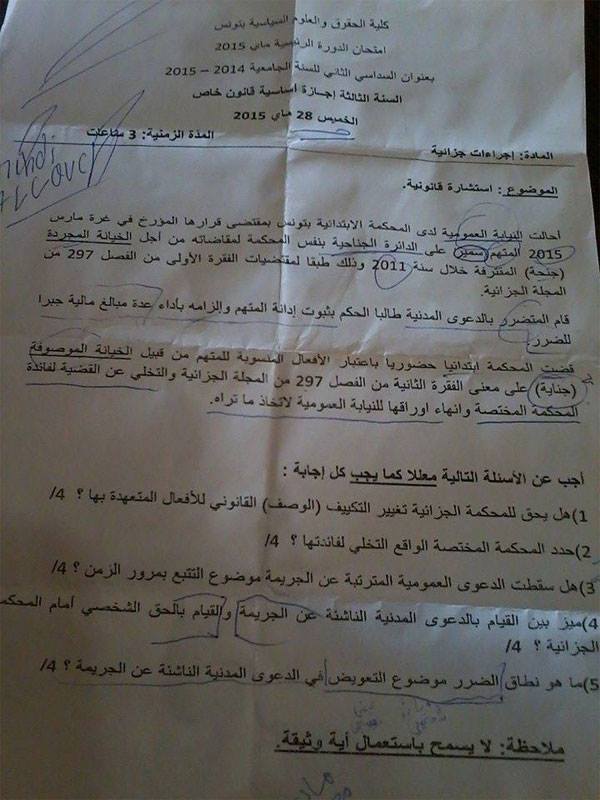 كلية الحقوق والعلوم السياسية بتونس
امتحان الدورة الرئيسية ماي 2015
بعنوان السداسي الثاني للسنة الجامعية 2014 – 2015
السنة الثالثة إجازة أساسية قانون خاص
الخميس 28 ماي 2015
المادة: إجراءات جزائية المدة الزمنية: 3 ساعات
الموضوع : استشارة قانونية.
أحالت النيابة العمومية لدى المحكمة الابتدائية بتونس بمقتضى قرارها المؤرخ في غرة مارس
2015 المتهم سمير على الدائرة الجناحية بنفس المحكمة لمقاضاته من أجل الخيانة المجردة
(جنحة) المقترفة خلال سنة 2011 وذلك طبقا لمقتضيات الفقرة الأولى من الفصل 297 من
المجلة الجزائية.
قام المتضرر بالدعوى المدنية طالبا الحكم بثبوت إدانة المتهم وإلزامه بأداء عدة مبالغ مالية جبرا
للضرر
قضت المحكمة ابتدائيا حضوريا باعتبار الأفعال المنسوبة للمتهم من قبيل الخيانة الموصوفة
(جناية) على معنى الفقرة الثانية من الفصل 297 من المجلة الجزائية والتخلي عن القضية لفائدة
المحكمة المختصة وانهاء اوراقها للنيابة العمومية لاتخاذ ما تراه.
أجب عن الأسئلة التالية معللا كما يجب كل إجابة :
1)هل يحق للمحكمة الجزائية تغيير التكييف (الوصف) القانوني للأفعال المتعهدة بها ؟ 4/
2)حدد المحكمة المختصة الواقع التخلي لفائدتها ؟ 4/
3)هل سقطت الدعوى العمومية المترتبة عن الجريمة موضوع التتبع بمرور الزمن ؟ 4/
4)ميز بين القيام بالدعوى المدنية الناشئة عن الجريمة والقيام بالحق الشخصي أمام المحكمة
الجزائية ؟ 4/
5)ما هو نطاق الضرر موضوع التعويض في الدعوى المدنية الناشئة عن الجريمة ؟ 4/
ملاحظة: لا يسمح باستعمال أية وثيقة.